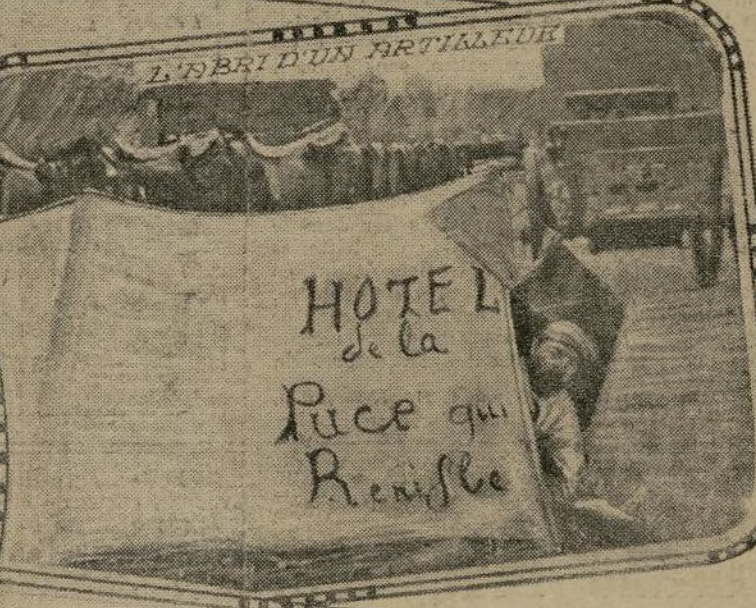 L'ABRI D'UN ARTILLEUR
HOTEL
de la
Puce qui
Renifle